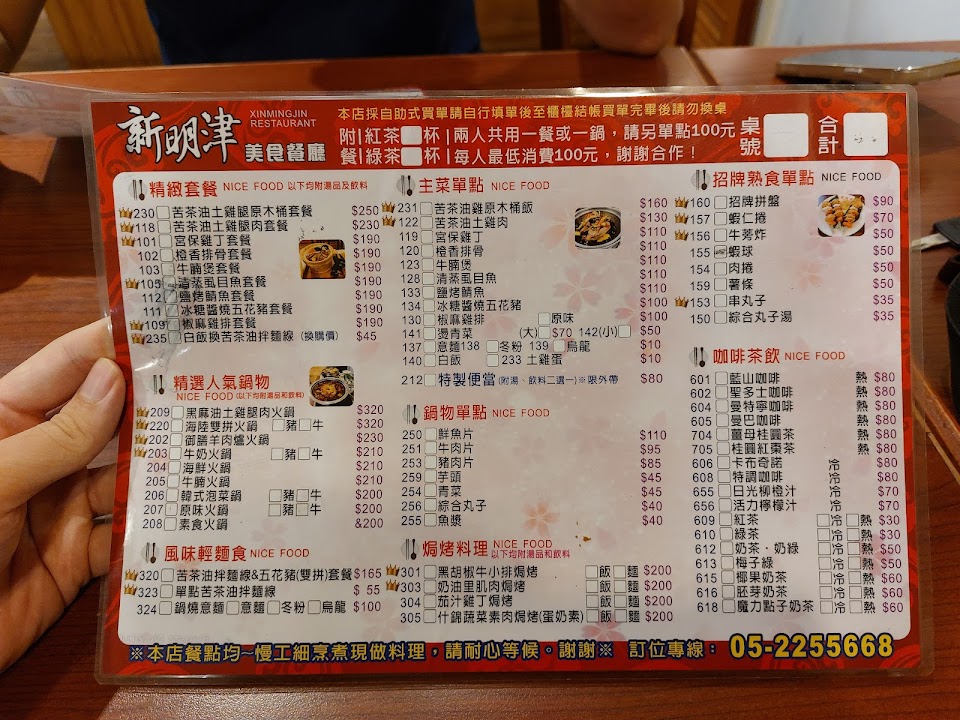 新明津
XINMINGJIN
RESTAURANT
美食餐廳
本店採自助式買單請自行填單後至櫃檯結帳買單完畢後請勿換桌
附|紅茶□杯|兩人共用一餐或一鍋，請另單點100元
餐|綠茶□杯|每人最低消費100元，謝謝合作！
桌號
合計
精緻套餐 NICE FOOD 以下均附湯品及飲料
230□苦茶油土雞腿原木桶套餐 $250
118□苦茶油土雞腿肉套餐 $230
101□宮保雞丁套餐 $190
102□橙香排骨套餐 $190
103□牛腩煲套餐 $190
105□清蒸虱目魚套餐 $190
112□鹽烤鯖魚套餐 $190
111□冰糖醬燒五花豬套餐 $190
109□椒麻雞排套餐 $190
235□白飯換苦茶油拌麵線 (換購價) $45
精選人氣鍋物
NICE FOOD (以下均附湯品和飲料)
209□黑麻油土雞腿肉火鍋 $320
220□海陸雙拼火鍋 □豬□牛 $320
202□御膳羊肉爐火鍋 $230
203□牛奶火鍋 □豬□牛 $210
204□海鮮火鍋 $210
205□牛腩火鍋 $210
206□韓式泡菜鍋 □豬□牛 $200
207□原味火鍋 □豬□牛 $200
208□素食火鍋 &200
風味輕麵食 NICE FOOD
320□苦茶油拌麵線&五花豬(雙拼)套餐 $165
323□單點苦茶油拌麵線 $ 55
324□鍋燒意麵□意麵□冬粉□烏龍 $100
主菜單點 NICE FOOD
231□苦茶油雞原木桶飯 $160
122□苦茶油土雞肉 $130
119□宮保雞丁 $110
120□橙香排骨 $110
123□牛腩煲 $110
128□清蒸虱目魚 $110
133□鹽烤鯖魚 $110
134□冰糖醬燒五花豬 $100
130□椒麻雞排 □原味 $100
141□燙青菜 (大)□$70 142(小)□ $50
137□意麵138 □冬粉 139 □烏龍 $10
140□白飯 □233 土雞蛋 $10
212□特製便當(附湯、飲料二選一)※限外帶 $80
鍋物單點 NICE FOOD
250□鮮魚片 $110
251□牛肉片 $95
253□豬肉片 $85
259□芋頭 $45
254□青菜 $45
256□綜合丸子 $40
255□魚漿 $40
焗烤料理 NICE FOOD 以下均附湯品和飲料
301□黑胡椒牛小排焗烤 □飯□麵 $200
303□奶油里肌肉焗烤 □飯□麵 $200
304□茄汁雞丁焗烤 □飯□麵 $200
305□什錦蔬菜素肉焗烤(蛋奶素) □飯□麵 $200
招牌熟食單點 NICE FOOD
160□招牌拼盤 $90
157□蝦仁捲 $70
156□牛蒡炸 $50
155□蝦球 $50
154□肉捲 $50
159□薯條 $50
153□串丸子 $35
150□綜合丸子湯 $35
咖啡茶飲 NICE FOOD
601□藍山咖啡 熱 $80
602□聖多士咖啡 熱 $80
604□曼特寧咖啡 熱 $80
605□曼巴咖啡 熱 $80
704□薑母桂圓茶 熱 $80
705□桂圓紅棗茶 熱 $80
606□卡布奇諾 冷 $80
608□特調咖啡 冷 $80
655□日光柳橙汁 冷 $70
656□活力檸檬汁 冷 $70
609□紅茶 □冷□熱 $30
610□綠茶 □冷□熱 $30
612□奶茶．奶綠 □冷□熱 $50
613□梅子綠 □冷□熱 $50
615□椰果奶茶 □冷□熱 $60
616□胚芽奶茶 □冷□熱 $60
618□魔力點子奶茶 □冷□熱 $60
※本店餐點均~慢工細烹煮現做料理，請耐心等候。謝謝※ 訂位專線： 05-2255668